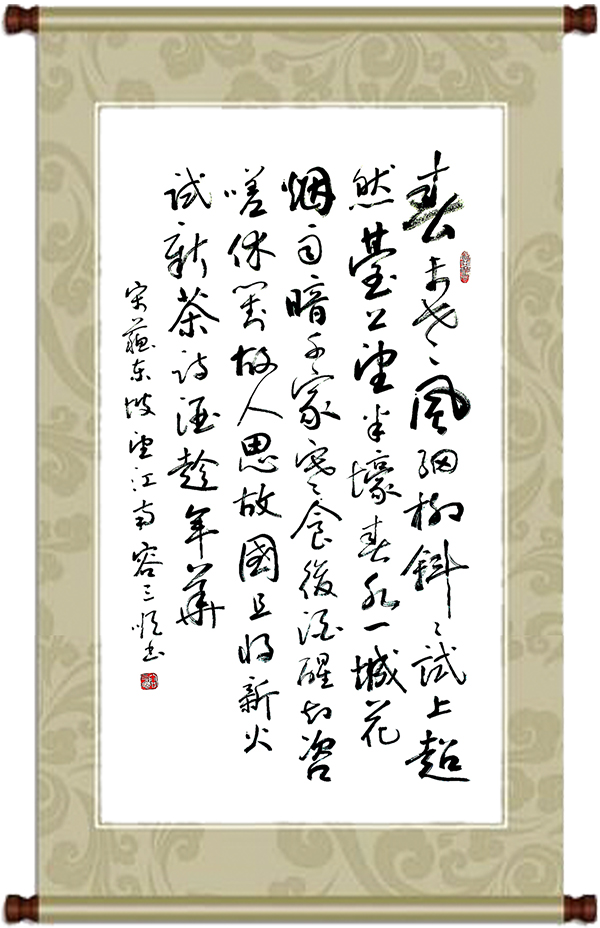 春未老風細柳斜〻試上超
然臺上望半壕春水一城花
烟雨暗千家寒食後酒醒却咨
嗟休對故人思故國且將新火
試新茶詩酒趁年華
宋蘇东坡望江南 容三书